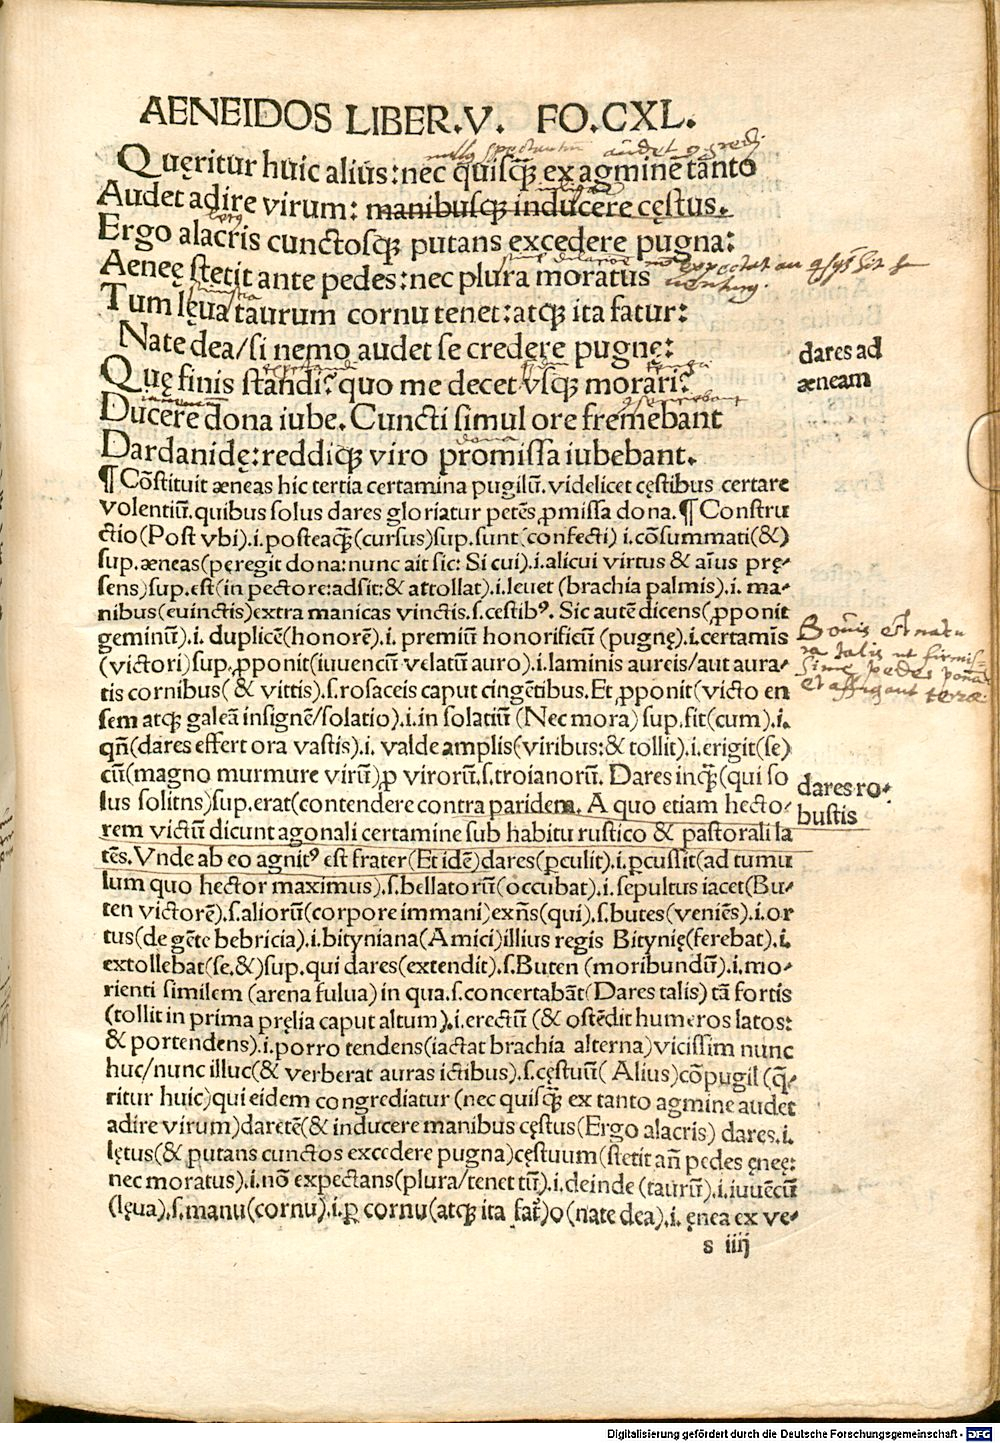 AENEIDOS LIBER.V. FO.CXL.
Quęritur huic alius: nec quisꝗ̃ ex agmine tanto
Audet adire virum: manibusqꝫ inducere cęstus.
Ergo alacris cunctosqꝫ putans excedere pugna:
Aeneę stetit ante pedes: nec plura moratus
Tum lęua taurum cornu tenet: atqꝫ ita fatur:
Nate dea/si nemo audet se credere pugnę:
Quę finis standi? quo me decet vsqꝫ morari?
dares ad
æneam
Ducere dona iube. Cuncti simul ore fremebant
dona
Dardanidę: reddiqꝫ viro promissa iubebant.
¶ Cõstituit æneas hic tertia certamina pugilũ. videlicet cęstibus certare
volentiũ. quibus solus dares gloriatur petẽs ꝓmissa dona. ¶ Constru
ctio (Post vbi).i. posteaꝗ̃ (cursus) sup. sunt (confecti) i. cõsummati (&)
sup. æneas (peregit dona: nunc ait sic: Si cui).i. alicui virtus & aĩus prę-
sens) sup. est (in pectore: adsit: & attollat).i. leuet (brachia palmis).i. ma-
nibus (euinctis) extra manicas vinctis. s. cestibꝰ. Sic autẽ dicens (ꝓponit
geminũ).i. duplicẽ (honorẽ).i. premiũ honorificũ (pugnę).i. certamĩs
(victori) sup. ꝓponit (iuuencũ velatũ auro).i. laminis aureis/aut aura-
tis cornibus (& vittis).s. rosaceis caput cingẽtibus. Et ꝓponit (victo en
sem atqꝫ galeã insignẽ/solatio).i. in solatiũ (Nec mora) sup. fit (cum).i.
qñ (dares effert ora vastis).i. valde amplis (viribus: & tollit).i. erigit (se)
cũ (magno murmure virũ) ꝓ virorũ. s. troianorũ. Dares inꝗ̃ (qui so
lus solitns) sup. erat (contendere contra paridem. A quo etiam hecto-
rem victũ dicunt agonali certamine sub habitu rustico & pastorali la
tẽs. Vnde ab eo agnitꝰ est frater (Et idẽ) dares (ꝑculit).i. ꝑcussit (ad tumu
lum quo hector maximus).s. bellatorũ (occubat).i. sepultus iacet (Bu-
ten victorẽ).s. aliorũ (corpore immani) exñs (qui).s. butes (veniẽs).i. or
tus (de gẽte bebricia).i. bityniana (Amici) illius regis Bitynię (ferebat).i.
extollebat (se. &) sup. qui dares (extendit).s. Buten (moribundũ).i. mo-
rienti similem (arena fulua) in qua. s. concertabãt (Dares talis) tã fortis
(tollit in prima pręlia caput altum).i. erectũ (& ostẽdit humeros latos:
& portendens).i. porro tendens (iactat brachia alterna) vicissim nunc
huc/nunc illuc (& verberat auras ictibus).s. cęstuũ (Alius) cõpugil (ꝗ̃-
ritur huic) qui eidem congrediatur (nec quisꝗ̃ ex tanto agmine audet
adire virum) daretẽ (& inducere manibus cęstus (Ergo alacris) dares. i.
lętus (& putans cunctos excedere pugna) cęstuum (stetit añ pedes ęneę:
nec moratus).i. nõ expectans (plura/tenet tũ).i. deinde (taurũ).i. iuuẽcũ
(lęua).s. manu (cornu).i. ꝑ cornu (atqꝫ ita fat̃) o (nate dea).i. ęnea ex ve-
s iiij
Bovis est natu
ra talis ut firmis-
sime pedes ponat
et affigant terræ
dares ro-
bustis
Digitalisierung gefördert durch die Deutsche Forschungsgemeinschaft - DFG